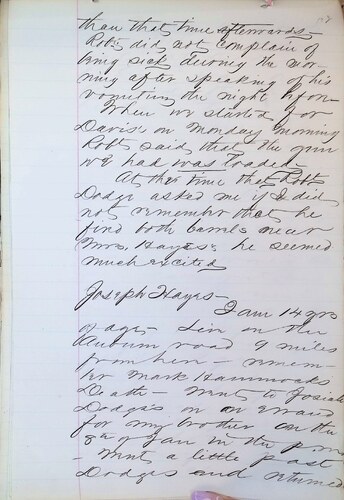 107
than that time afterwards,
Robt did not complain of
being sick during the mor-
ning after speaking of his
vomiting the night before
When we started for
Davis's on Monday morning
Robt said that the gun
we had was loaded
At the time that Robt
Dodge asked me if I did
not remember that he
fired both barrels near
Mrs. Hayes's he seemed
much excited
Joseph Hayes—
I am 14 yrs
of age— Live on the
Auburn road 9 miles
from here— remem-
ber Mark Hammocks
Death— Went to Josiah
Dodges on an errand
for my brother on the
of Jan in the p.m.
— Went a little past
Dodges and returned